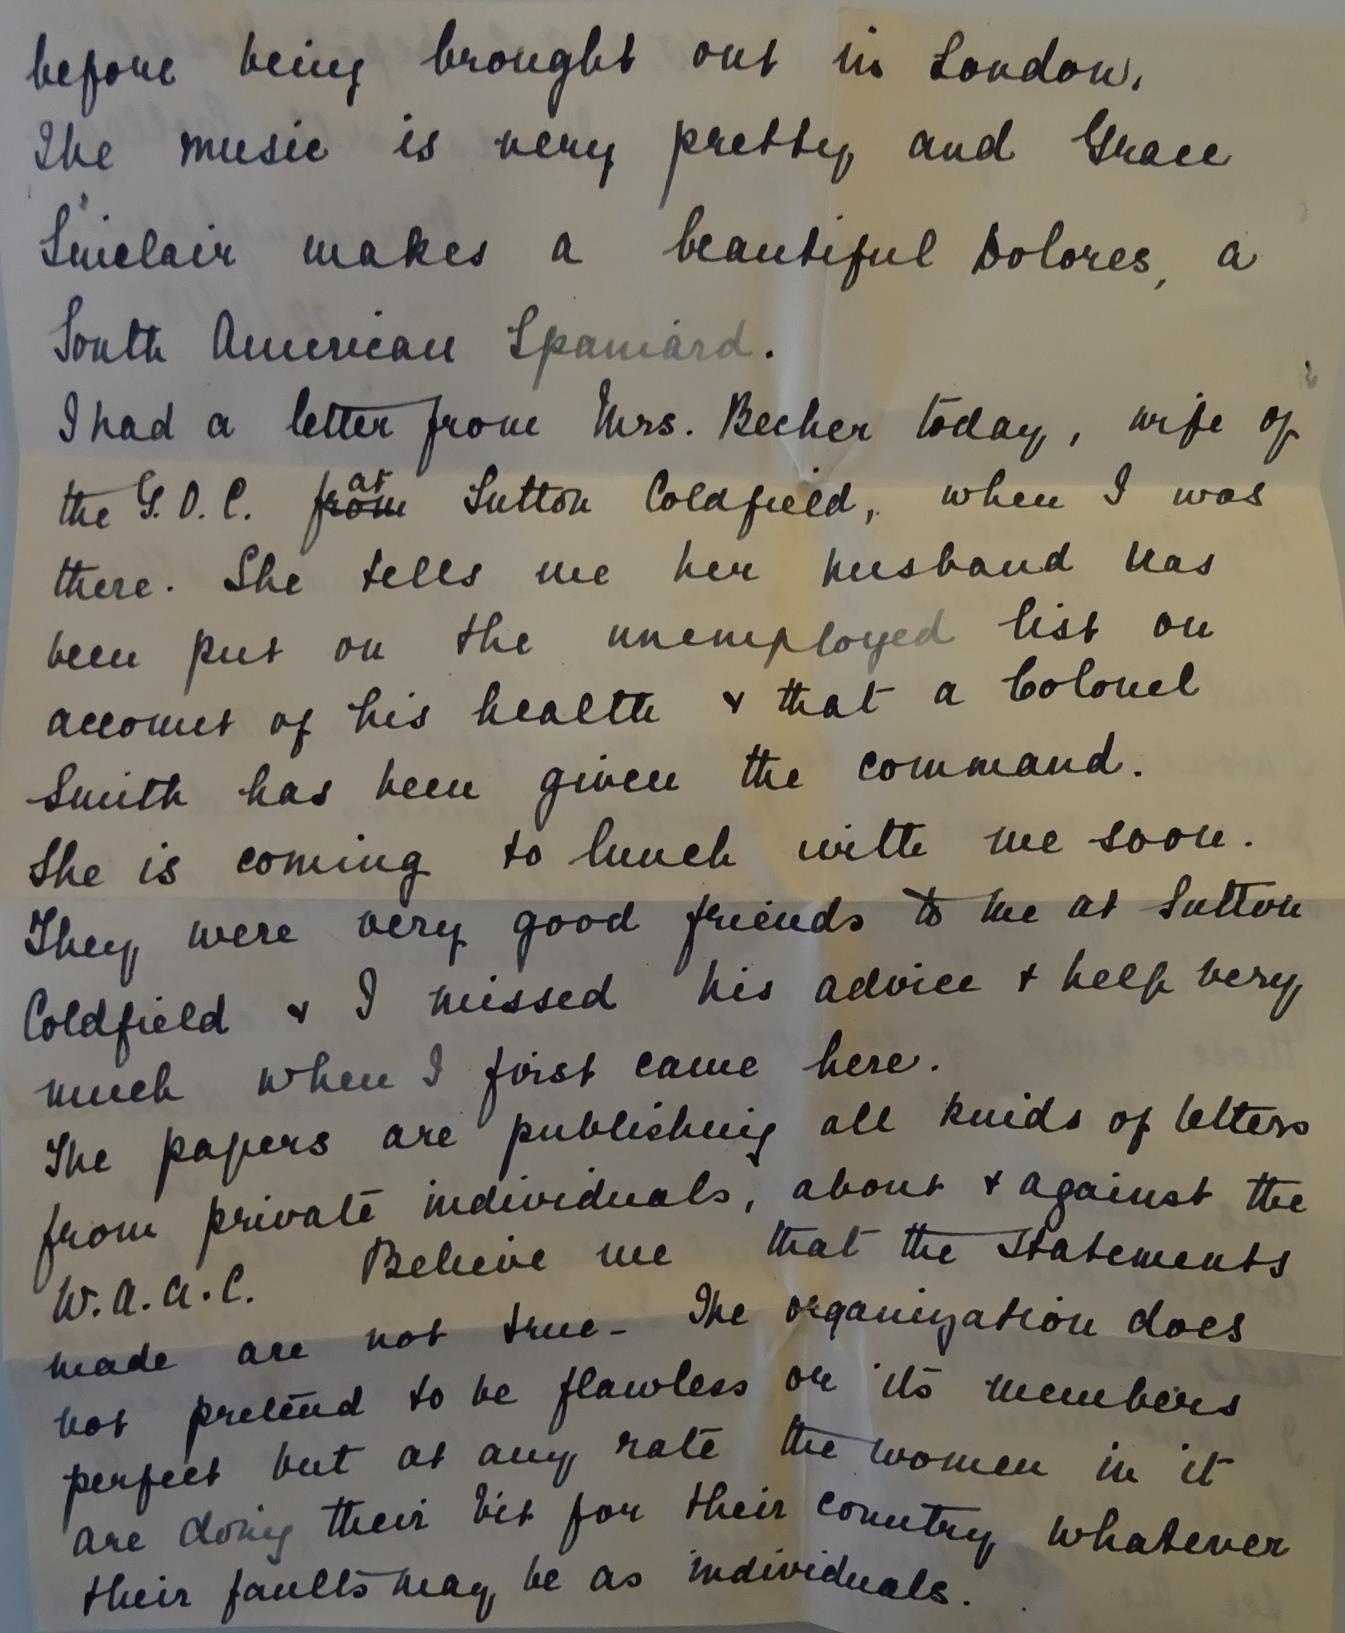 before being brought out in London.
The music is very pretty and Grace
Sinclair makes a beautiful Dolores, a
South American Spaniard.
I had a letter from Mrs. Becher today, wife of
the G.O.C. from at Sutton Coldfield, when I was
there. She tells me her husband has
been put on the unemployed list on
account of his health & that a Colonel
Smith has been given the command.
She is coming to lunch with me soon.
They were very good friends to me at Sutton
Coldfield & I missed his advice & help very
much when I first came here.
The papers are publishing all kinds of letters
from private individuals, about & against the
W.A.A.C. Believe me that the statements
made are not true - The organization does
not pretend to be flawless or its members
perfect but at any rate the women in it
are doing their bit for their country whatever
their faults may be as individuals.